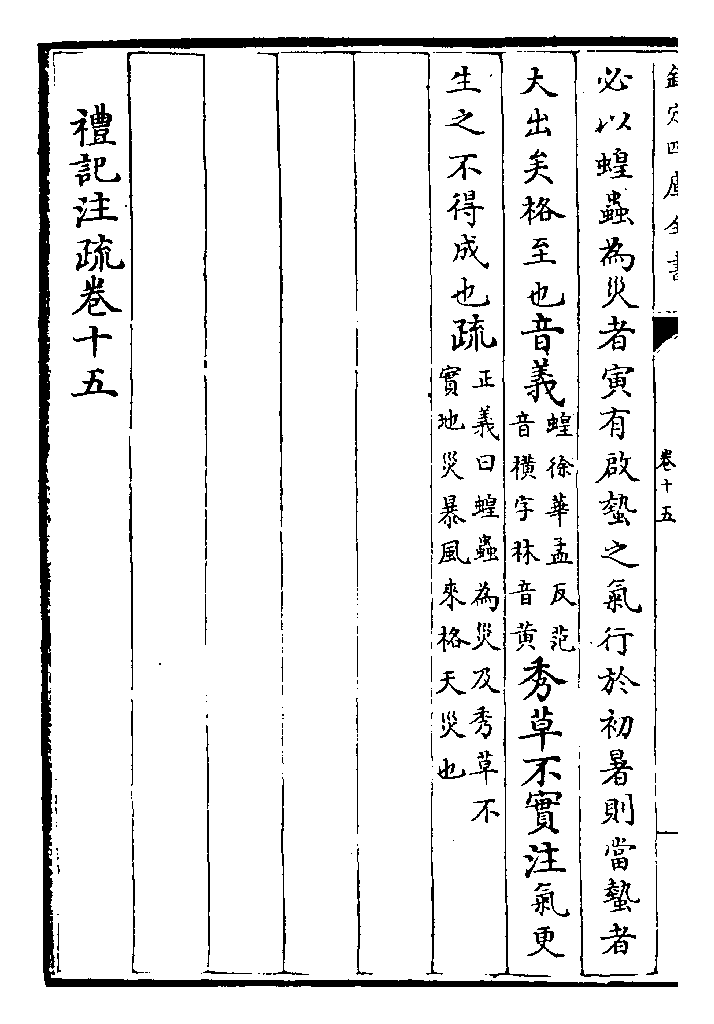 欽定四庫全書
卷十五
必以蝗蟲為災者寅有啟蟄之氣行於初暑則當蟄者
大出矣格至也音義蝗徐華孟反范音橫字林音黄秀草不實注氣更
生之不得成也疏正義曰蝗蟲為災及秀草不實地災暴風來格天災也
禮記注疏卷十五